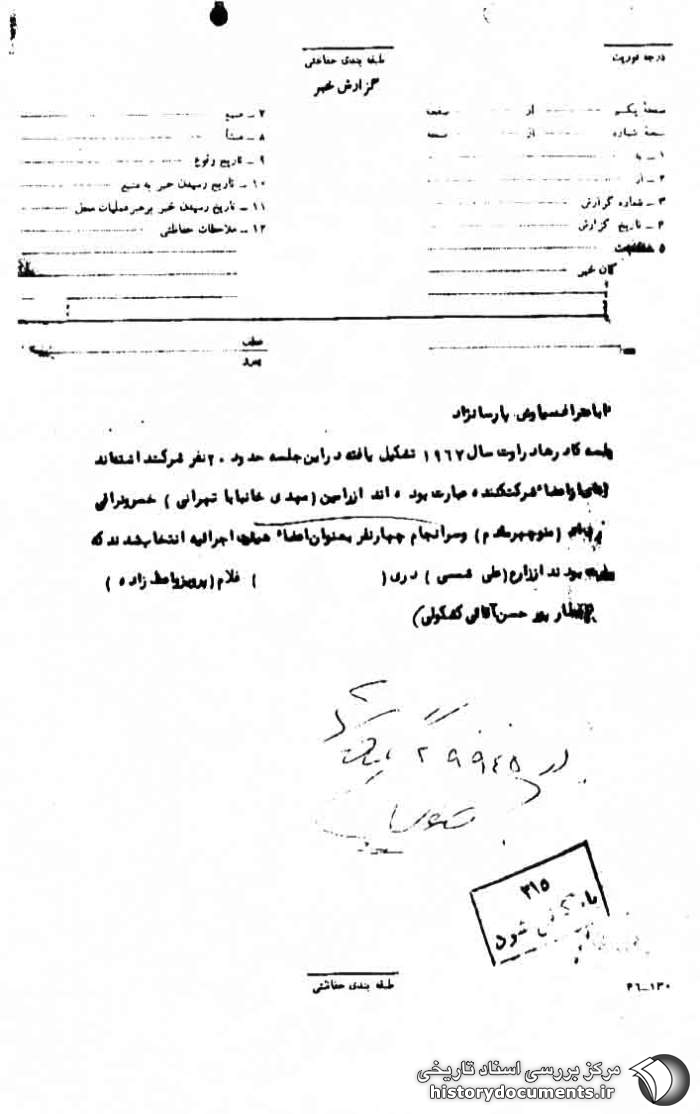 درجه فوریت
طبقه بندی حفاظتی
گزارش خبر
صفحهٔ یکم از صفحه
صفحهٔ شماره از صفحه
۱ ـ به
۲ ـ از
۳ ـ شماره گزارش
۴ ـ تاریخ گزارش
۵
گان خبر
۷ ـ منبع
۸ ـ منشأ
۹ ـ تاریخ وقوع
۱۰ ـ تاریخ رسیدن خبر به منبع
۱۱ ـ تاریخ رسیدن خبر برهبر عملیات محل
۱۲ ـ ملاحظات حفاظتی
عطف
پیرو
پارسانژاد
جلسه کادرها در اوت سال ۱۹۶۷ تشکیل یافته در این جلسه حدود ۲۰ نفر شرکت داشته‌اند
شرکت‌کننده عبارت بوده اند از (مهدی خانبابا تهرانی) خسرو نراقی
(منوچهر مقدم) و سرانجام چهارنفر بعنوان اعضاء هیئت اجرائیه انتخاب شدند که
بودند از زارع (علی شمسی) دری ( ) غلام (پرویز واعظ زاده)
حسن آقائی کشکولی)
در ۲۹۹۴۵
۳۱۵
شود
طبقه بندی حفاظتی
۴۶ـ۱۳۰
مرکز بررسی اسناد تاریخی
historydocuments.ir